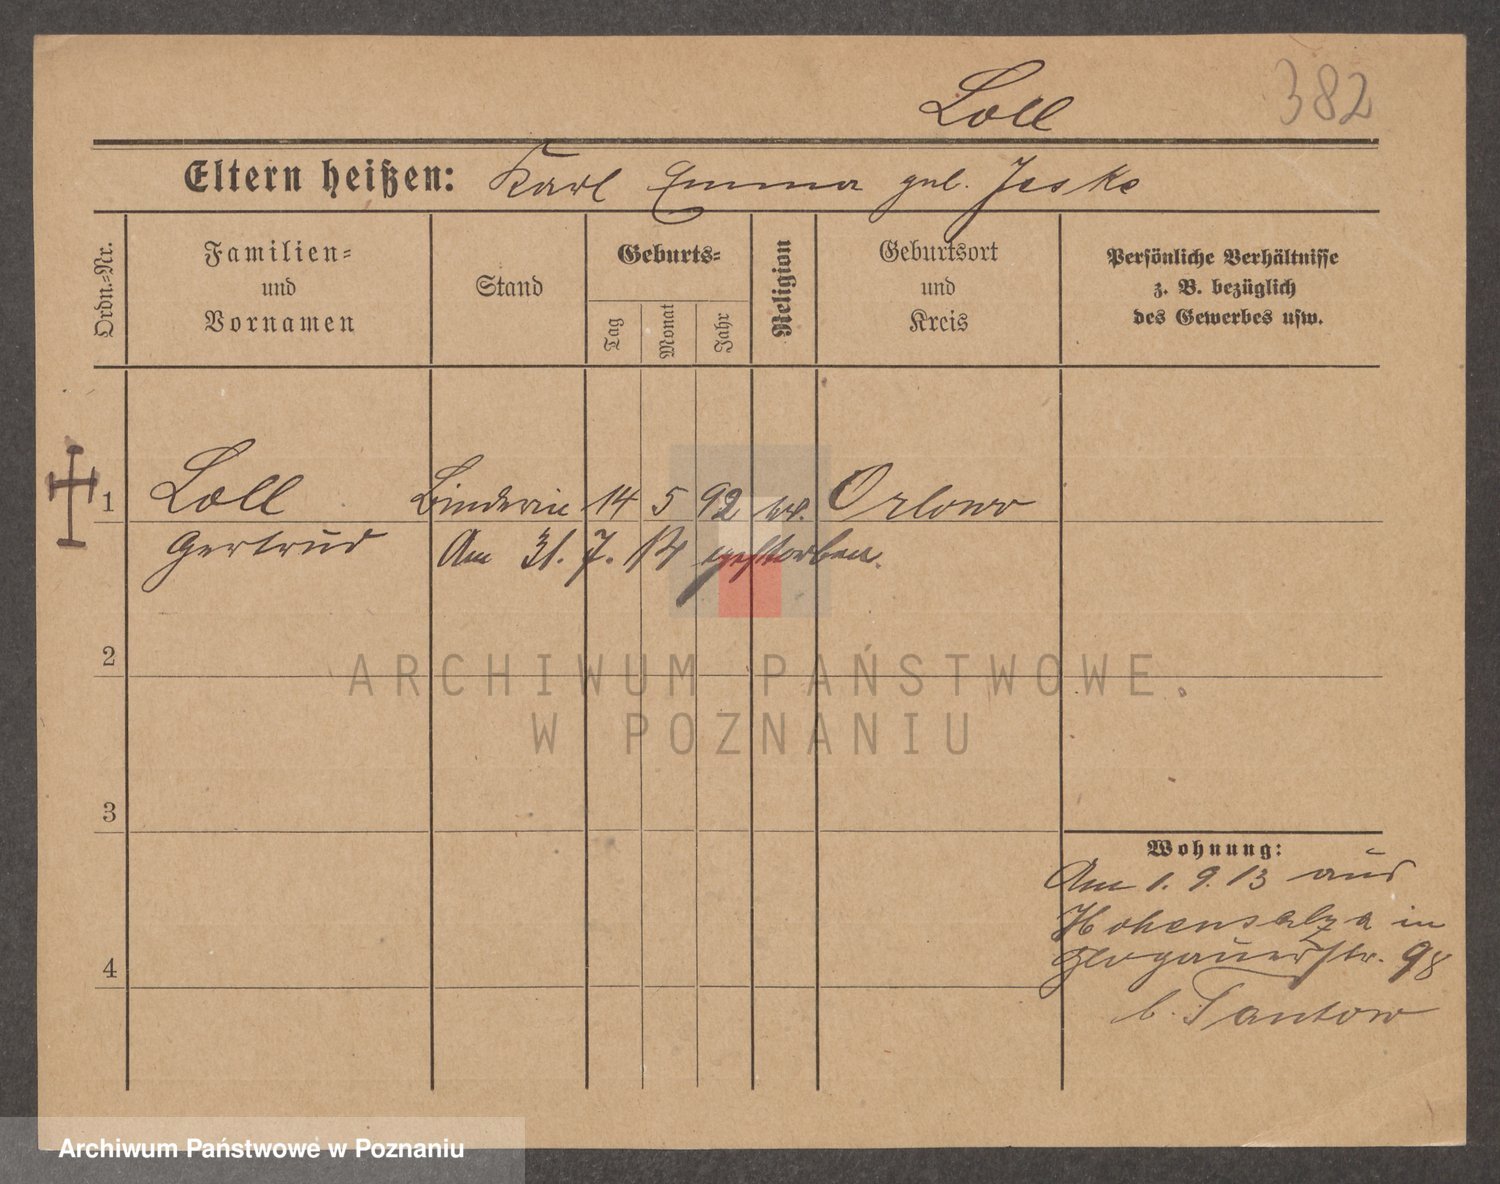 Loll
382
Eltern heißen: Karl Emma geb. Jeske
Ordn.-Nr.
Familien-
und
Vornamen
Stand
Geburts-
Tag
Monat
Jahr
Religion
Geburtsort
und
Kreis
Persönliche Verhältnisse
z. B. bezüglich
des Gewerbes usw.
1 Loll Binderin 14 5 92 ev. Orlowo
Gertrud Am 31. 7. 14 gestorben.
2
3
4
Wohnung:
Am 1. 9. 13 aus
Hohensalza in
Glogauerstr. 98
b. Tantow
ARCHIWUM PAŃSTWOWE
W POZNANIU
Archiwum Państwowe w Poznaniu